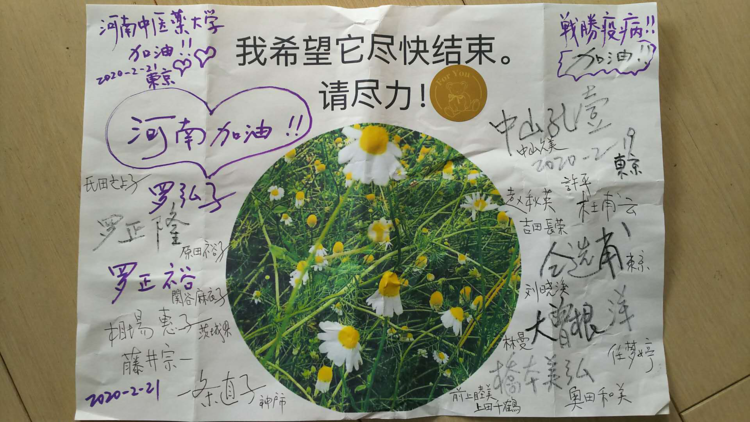 河南中医薬大学
加油!!
2020-2-21 東京
我希望它尽快结束。
请尽力!
For You
戦勝疫病!!
加油!!
河南加油!!
中山孔壹
2020-2-19
東京
罗弘子
罗正隆
原田裕子
罗正裕
関谷麻衣子
相場恵子
茨城県
藤井宗一
2020-2-21
一条直子
神戸市
赵秋英
許平
杜甫云
吉田長荣
仝选甫
東京
刘晓漪
大曽根洋
林曼
任梦婷
橋本美弘
井上睦美
上田千鶴
奥田和美